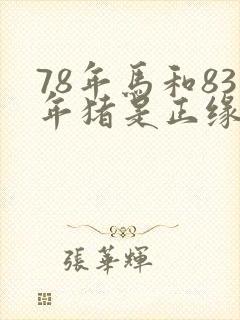 78年馬和83
年猪是正缘
張華輝